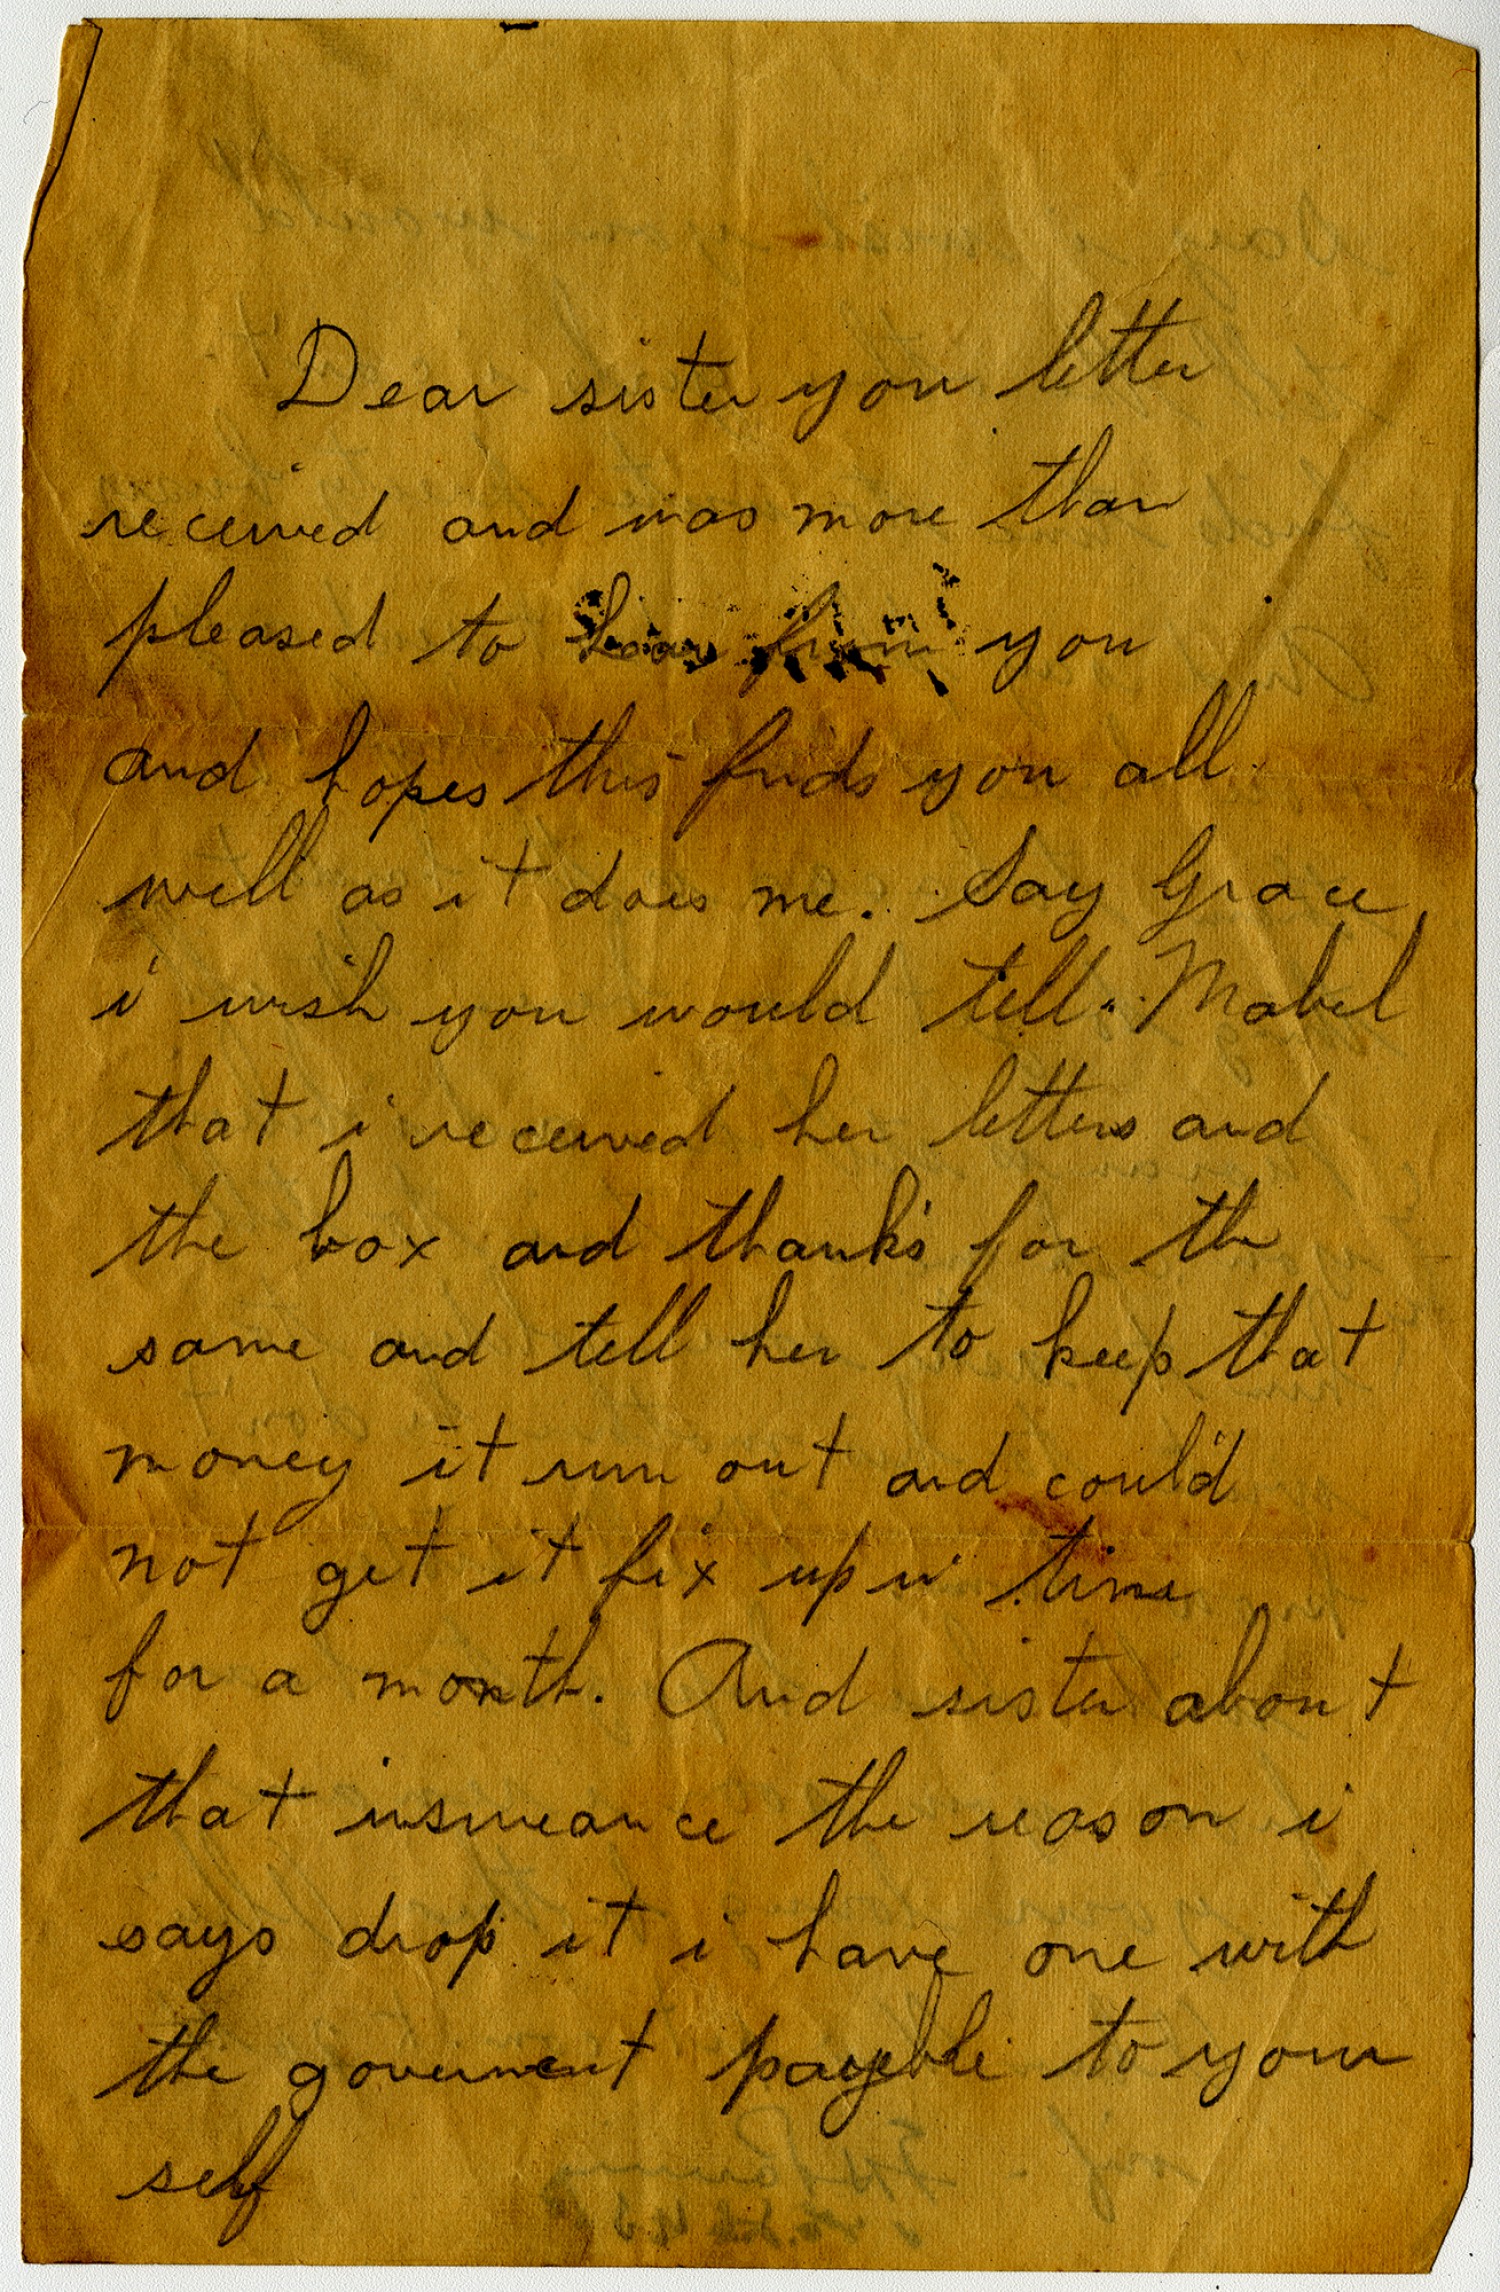 Dear sister you letter
received and was more than
pleased to hear from you
and hopes this finds you all
well as it does me. Say Grace
i wish you would tell Mabel
that i received her letters and
the box and thanks for the
same and tell her to keep that
money it run out and could
not get it fix up in time
for a month. And sister about
that insureance the reason i
says drop it i have one with
the goverment payeble to your
self